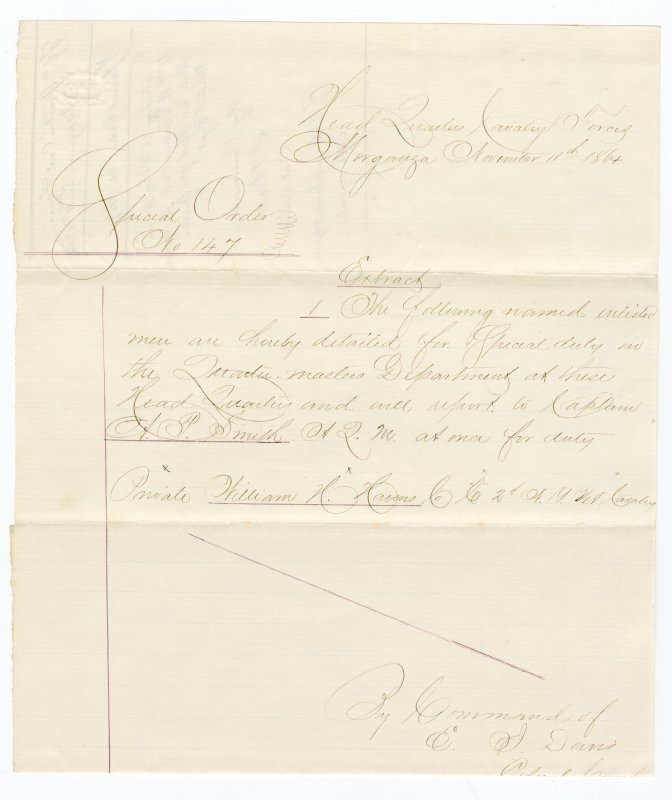 Head Quarters Cavalry Forces
Morganza November 11th 1864
Special Order
No 147
Extract
1 The following named enlisted
men are hereby detailed for Special duty in
the Quarter-masters Department at these
Head Quarters and will report to Captain
A. P. Smith. A. Q. M. at once for duty
Private William H. Havens Co "C" 2d N. Y. Vet. Cavalry
By Command of
E. J. Davis